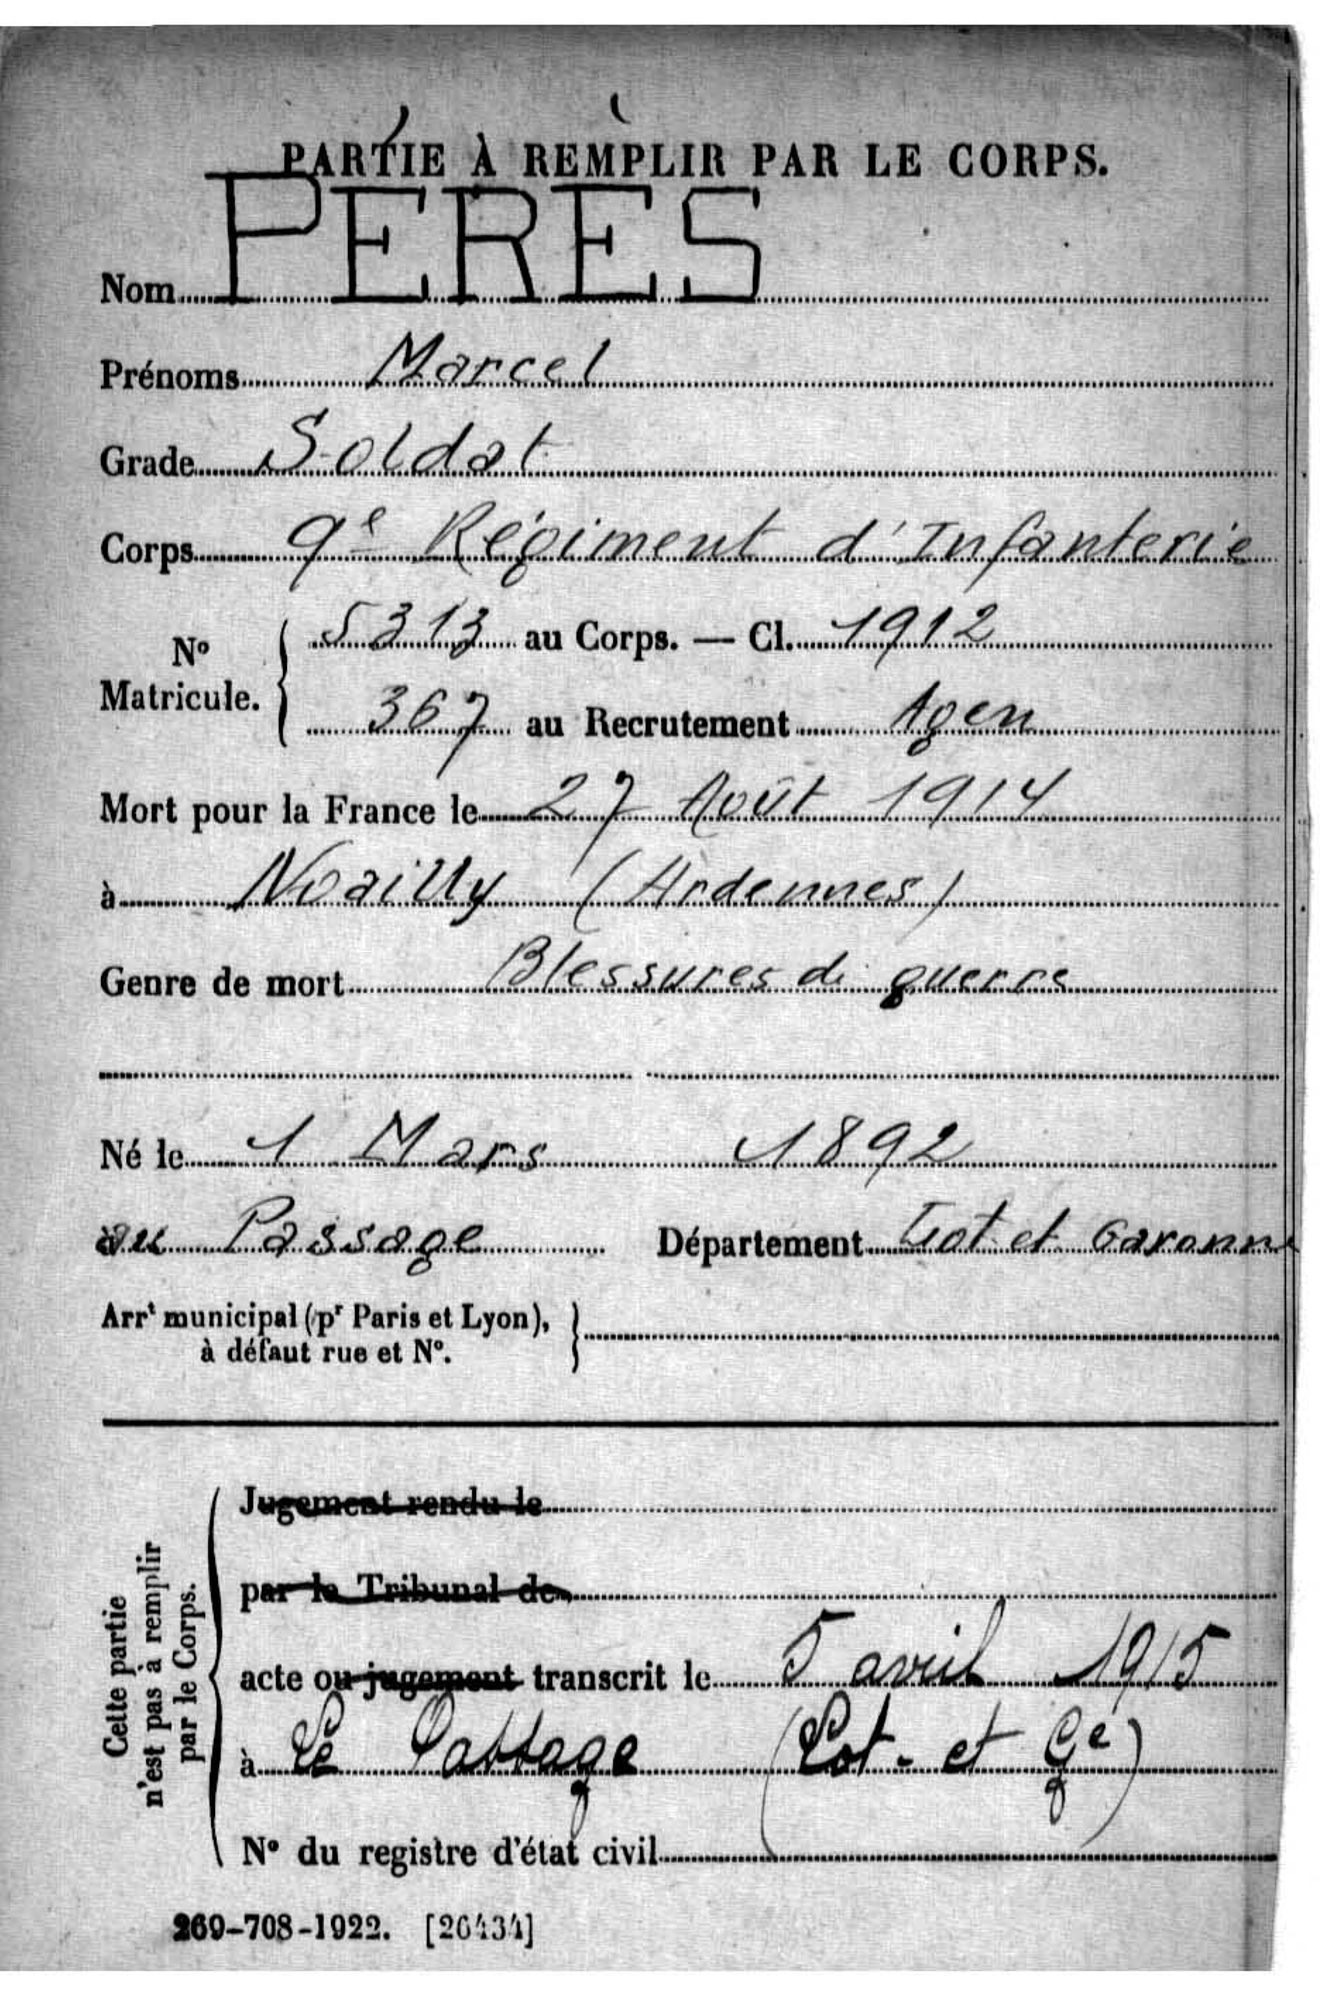 PARTIE À REMPLIR PAR LE CORPS.
Nom PÉRÈS
Prénoms Marcel
Grade Soldat
Corps 9e Régiment d'Infanterie
No Matricule. 5313 au Corps. — Cl. 1912
367 au Recrutement Agen
Mort pour la France le 27 Août 1914
à Noailly (Ardennes)
Genre de mort Blessures de guerre
Né le 1 Mars 1892
au Passage Département Lot et Garonne
Arrt municipal (pr Paris et Lyon),
à défaut rue et No.
Cette partie
n'est pas à remplir
par le Corps.
Jugement rendu le
par le Tribunal de
acte ou jugement transcrit le 5 avril 1915
à Le Passage (Lot-et Ge)
No du registre d'état civil
269-708-1922. [26434]